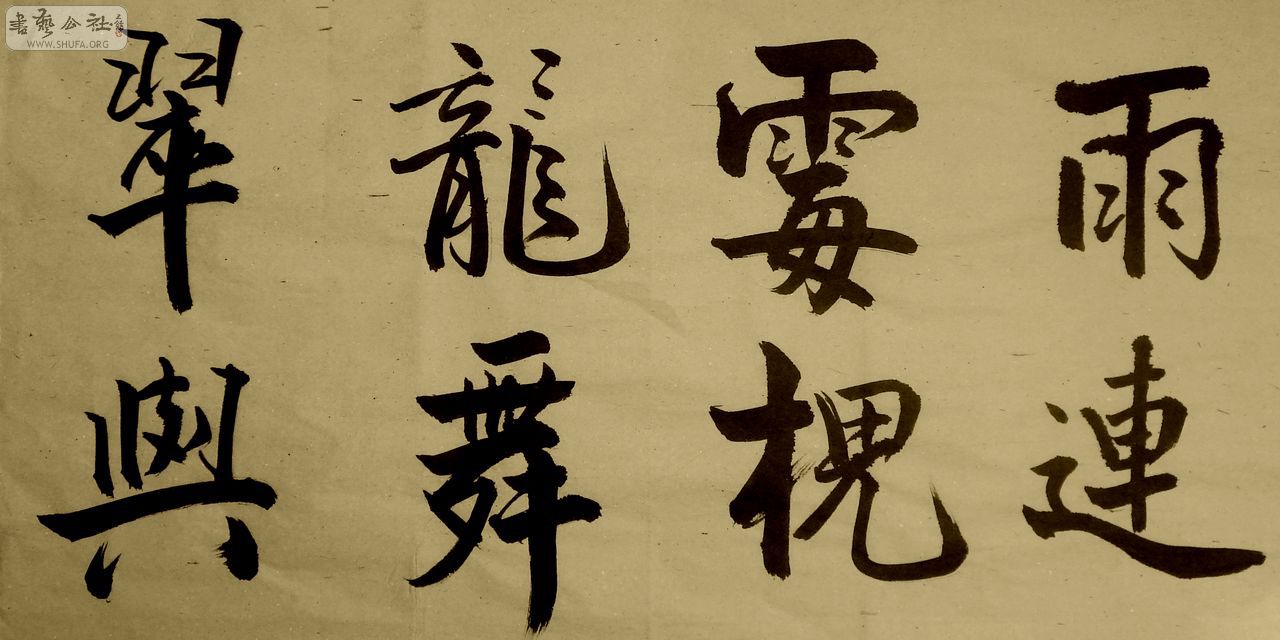 雨連
霉槐
龍舞
翠與
書藝公社
WWW.SHUFA.ORG